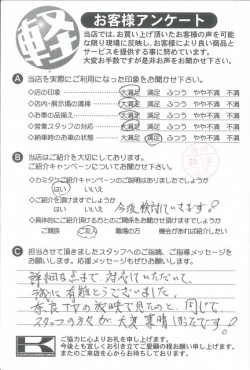 軽
お客様アンケート
当店では、お買い上げ頂いたお客様の声を可能
な限り現場に反映し、お客様により良い商品と
サービスを提供する事に努めています。
大変お手数ですが是非お声をお聞かせ下さい。
A 当店を実際にご利用になった印象をお聞かせ下さい。
◇店の印象 大満足 満足 ふつう やや不満 不満
◇店内・展示場の清掃 大満足 満足 ふつう やや不満 不満
◇お車の品揃え 大満足 満足 ふつう やや不満 不満
◇営業スタッフの対応 大満足 満足 ふつう やや不満 不満
◇納車時のお車の状態 大満足 満足 ふつう やや不満 不満
B 当店はご紹介を大切にしております。
ご紹介キャンペーンについてお聞かせ下さい。
◇カミタケご紹介キャンペーンのご説明はありましたでしょうか
はい いいえ
◇ご紹介を頂けますでしょうか
はい いいえ 今後検討していきます!
◇具体的にご紹介頂ける方とのご関係をお聞かせ頂けますでしょうか
ご親族 ご友人 職場の方 機会があれば紹介したい
C 担当させて頂きましたスタッフへのご指摘、ご指導メッセージを
お願いします。応援メッセージもぜひお願いします。
詳細な点まで、対応していただいて、
誠に有難とうございました。
奈良TVの放映で見たのと、同じで
スタッフの方々が大変素晴しかったです。!
K
ご協力に心よりお礼を申し上げます。
今後とも宜しくお引き立てご愛顧の程お願い申し上げます。
またのご来店を心からお待ちしております。